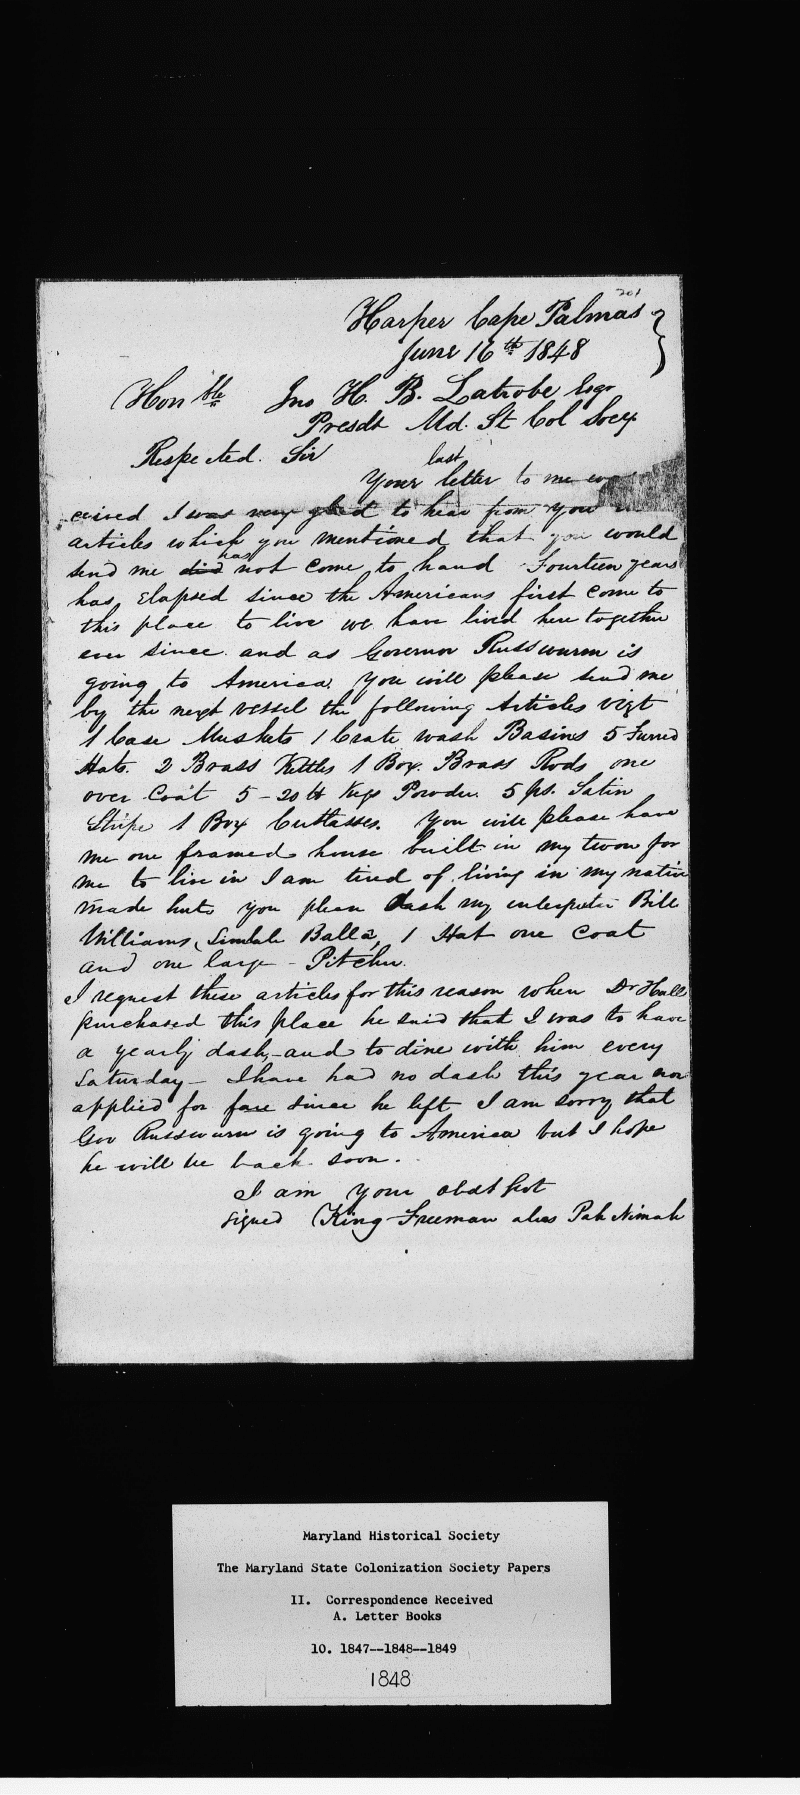 201
Harper Cape Palmas
June 16th 1848
Honble Jno H. B. Latrobe Esqr
Presdt Md. St Col Socy
Respected Sir
last
Your letter to me
ceived I was very glad to hear from you
articles which you mentioned that you would
has
send me did not come to hand Fourteen years
has elapsed since the Americans first come to
this place to live we have lived here together
ever since and as Governor Russwurm is
going to America. You will please send me
by the next vessel the following Articles vizt
1 Case Muskets 1 Crate wash Basins 5 Furred
Hats. 2 Brass Kettles 1 Box Brass Rods one
over Coat 5 - 20 lb Kegs Powder. 5 ps. Satin
Stripe 1 Box Cutlasses. You will please have
me one framed house built in my twon for
me to live in I am tired of living in my native
made huts you please dash my interpeter Bill
Williams, Balla, 1 Hat one Coat
and one large - Pitcher.
I request these articles for this reason when Dr Hall
purchased this place he said that I was to have
a yearly dash, and to dine with him every
Saturday - I have had no dash this year nor
applied for since he left I am sorry that
Gov Russwurm is going to America but I hope
he will be back soon.
I am your obdt Svt
signed King Freeman alias Pah Nimah
Maryland Historical Society
The Maryland State Colonization Society Papers
II. Correspondence Received
A. Letter Books
10. 1847--1848--1849
1848